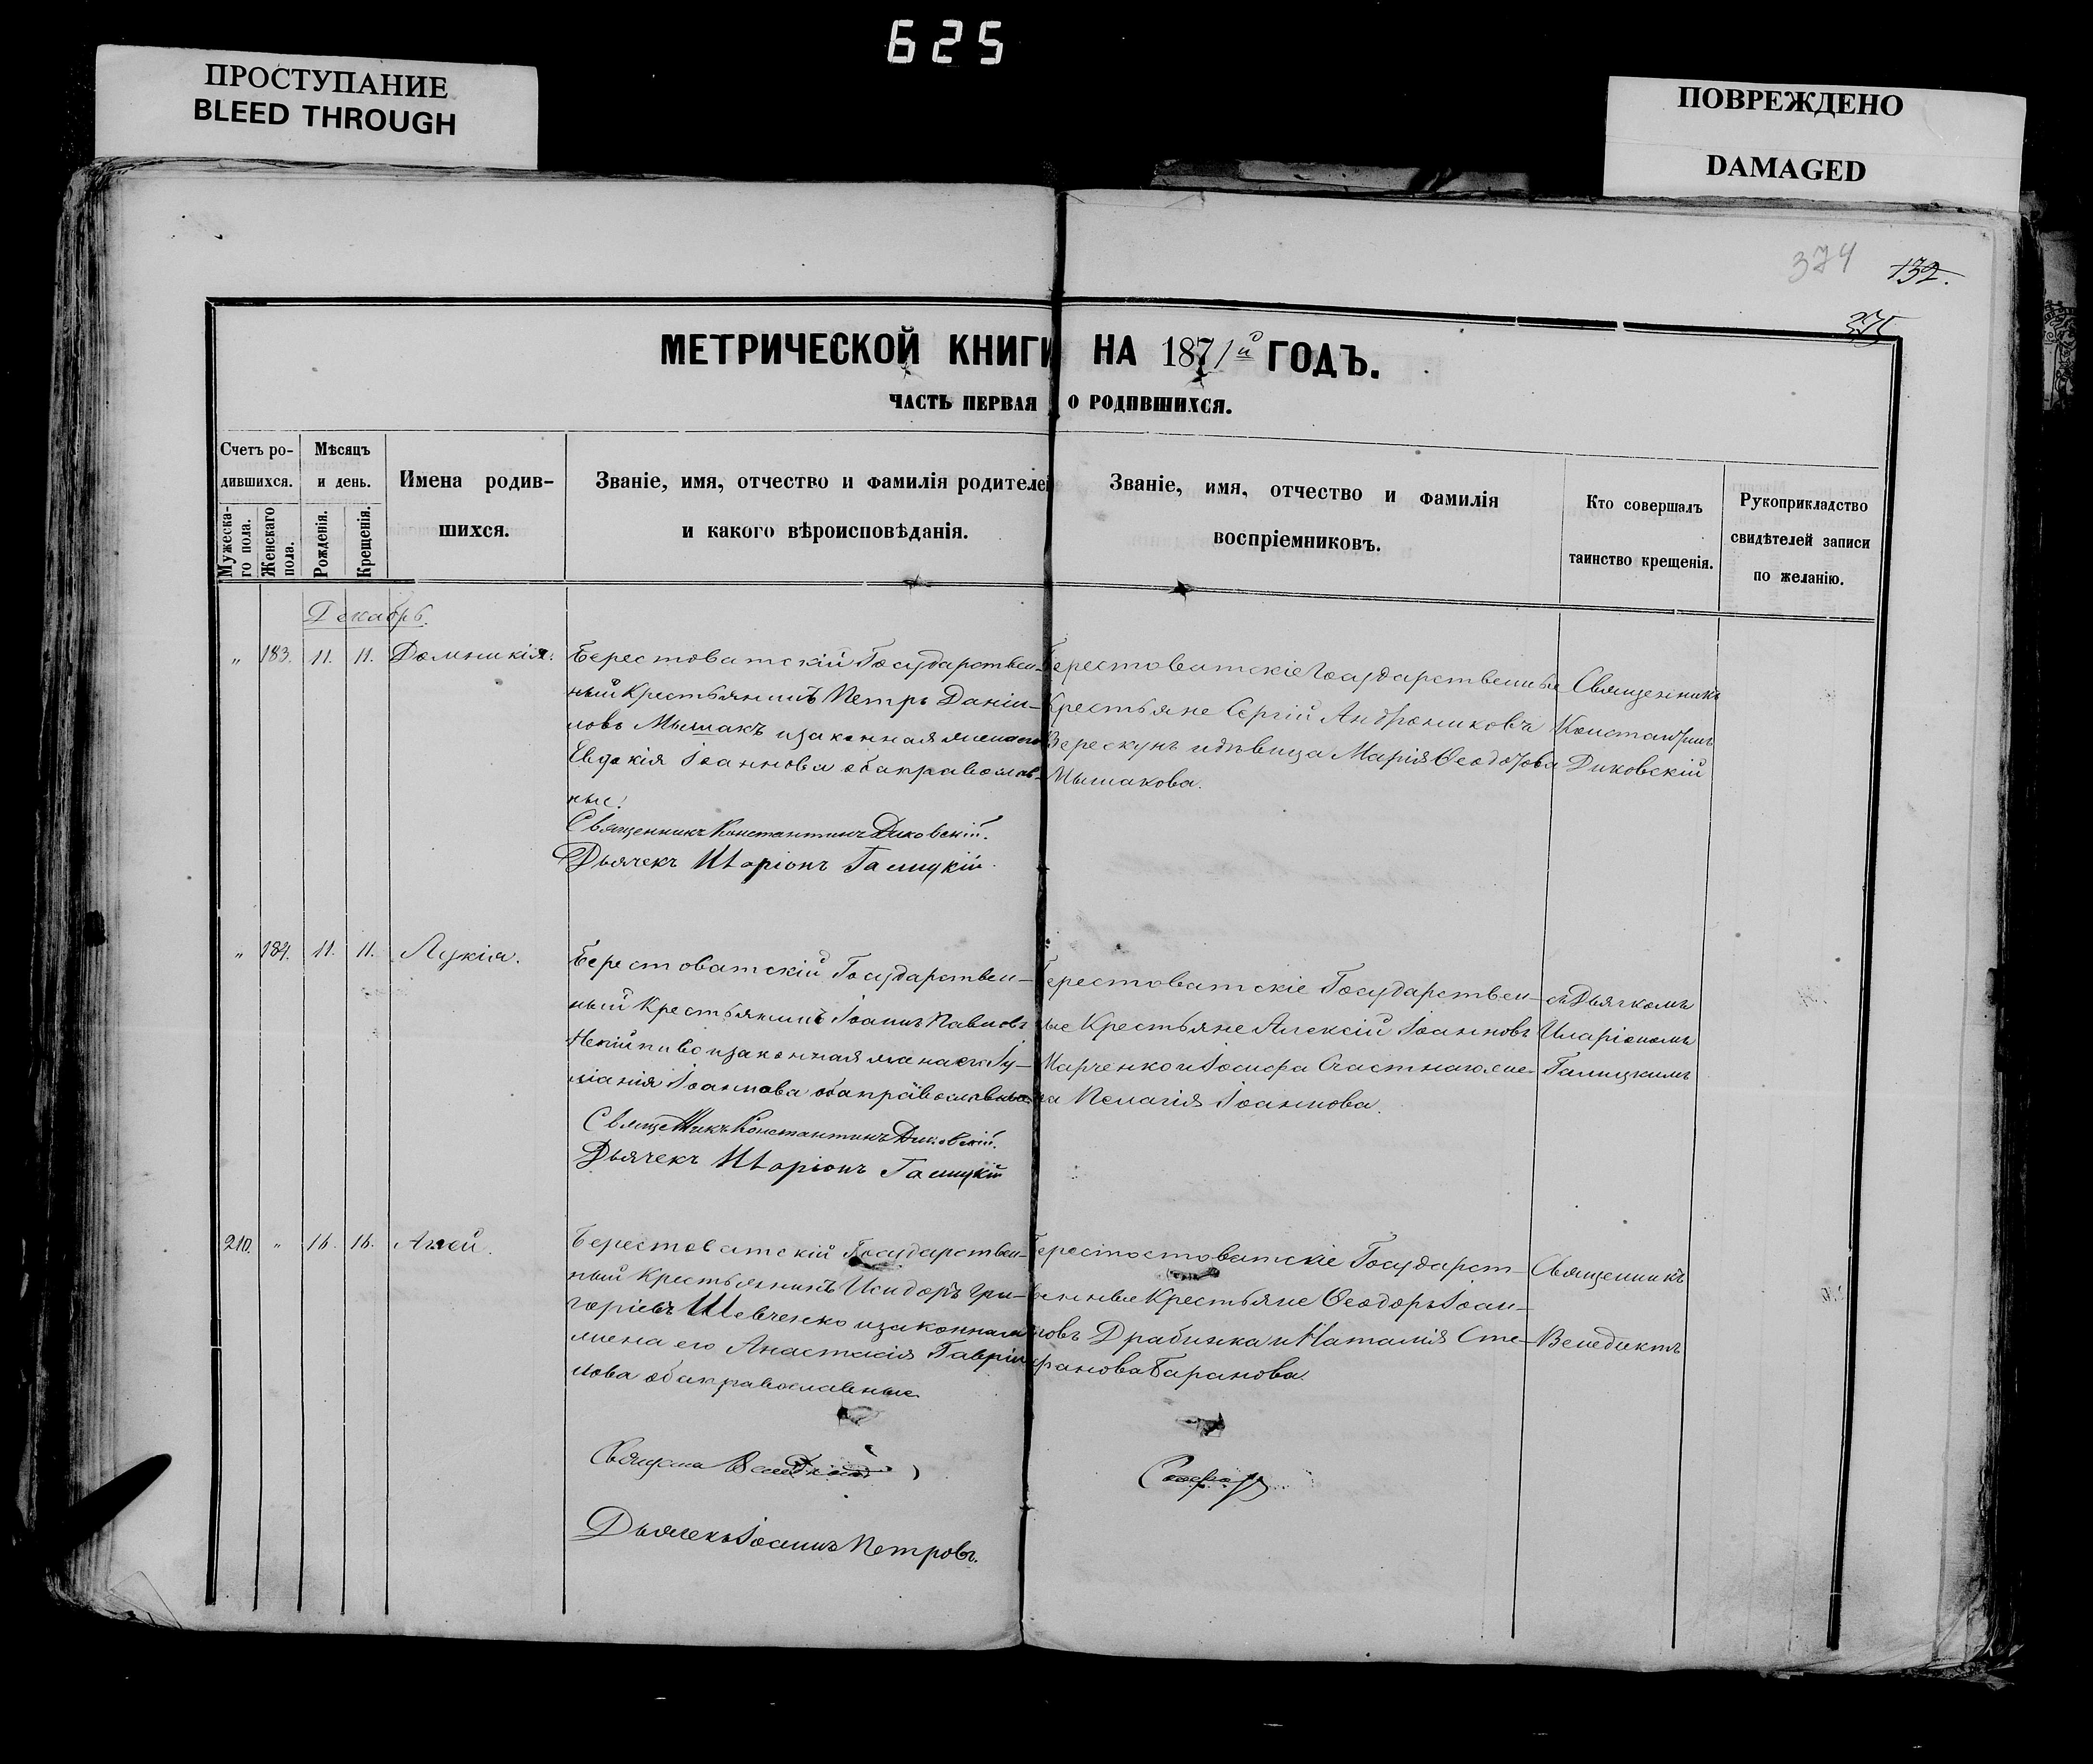 625
ПРОСТУПАНИЕ
BLEED THROUGH
ПОВРЕЖДЕНО
DAMAGED
374
132.
375
МЕТРИЧЕСКОЙ КНИГИ НА 1871й ГОДЪ.
ЧАСТЬ ПЕРВАЯ О РОДИВШИХСЯ.
Счетъ ро-
дившихся.
Мужеска-
го пола.
Женскаго
пола.
Мѣсяцъ
и день.
Рожденія.
Крещенія.
Имена родив-
шихся.
Званіе, имя, отчество и фамилія родителей
и какого вѣроисповѣданія.
Званіе, имя, отчество и фамилія
воспріемниковъ.
Кто совершалъ
таинство крещенія.
Рукоприкладство
свидѣтелей записи
по желанію.
Декабрь.
„ 183. 11. 11. Домникія.
Берестоватскій Государствен-
ный Крестьянинъ Петръ Даніи-
ловъ Мышакъ и законная жена его
Евдокія Іоаннова оба православ-
ные.
Священникъ Константинъ Диковскій.
Дьячекъ Иларіонъ Галицкій.
Берестоватскіе Государственные
Крестьяне Сергій Андрониковъ
Верескунъ и дѣвица Марія Ѳеодорова
Мышакова.
Священникъ
Константинъ
Диковскій
„ 184. 11. 11. Лукія.
Берестоватскій Государствен-
ный Крестьянинъ Іоаннъ Павловъ
Непійпиво и законная жена его Іу-
ліанія Іоаннова оба православные.
Священникъ Константинъ Диковскій.
Дьячекъ Иларіонъ Галицкій
Берестоватскіе Государствен-
ные Крестьяне Алексій Іоанновъ
Марченко и Іосифа Счастнаго же-
на Пелагія Іоаннова.
съ Дьячкомъ
Иларіономъ
Галицкимъ
210. „ 16. 16. Аггей.
Берестоватскій Государствен-
ный Крестьянинъ Исидоръ Гри-
горіевъ Шевченко и законная
жена его Анастасія Гавріи-
лова оба православные
Дьячекъ Іоаннъ Петровъ.
Берестостоватскіе Государст-
венные Крестьяне Ѳеодоръ Іоан-
новъ Драбинка и Наталія Сте-
фанова Баранова.
Священникъ
Венедиктъ